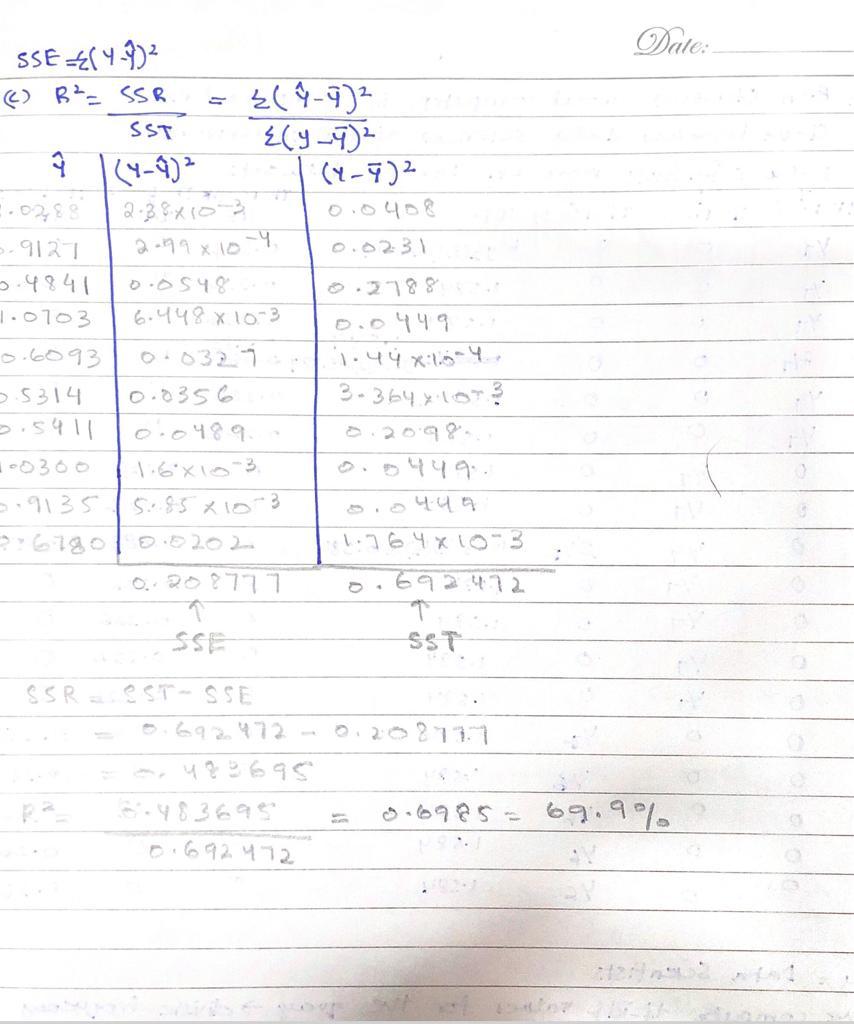 Date:
SSE = Σ(Y-Ŷ)²
(c) R² = SSR / SST = Σ(Ŷ-Ȳ)² / Σ(y-ȳ)²
Ŷ (Y-Ŷ)² (Y-Ȳ)²
.0288 2.38×10-3 0.0408
.9127 2.99×10-4 0.0231
0.4841 0.0548 0.2788
1.0703 6.448×10-3 0.0449
0.6093 0.0327 1.44×10-4
0.5314 0.0356 3.364×10-3
.5911 0.0489 0.2098
1.0300 1.6×10-3 0.0449
.9135 5.85×10-3 0.0449
.6780 0.0202 1.764×10-3
0.208777 0.692472
↑ ↑
SSE SST
SSR = SST - SSE
= 0.692472 - 0.208777
= 0.483695
R² = 0.483695 / 0.692472 = 0.6985 = 69.9%